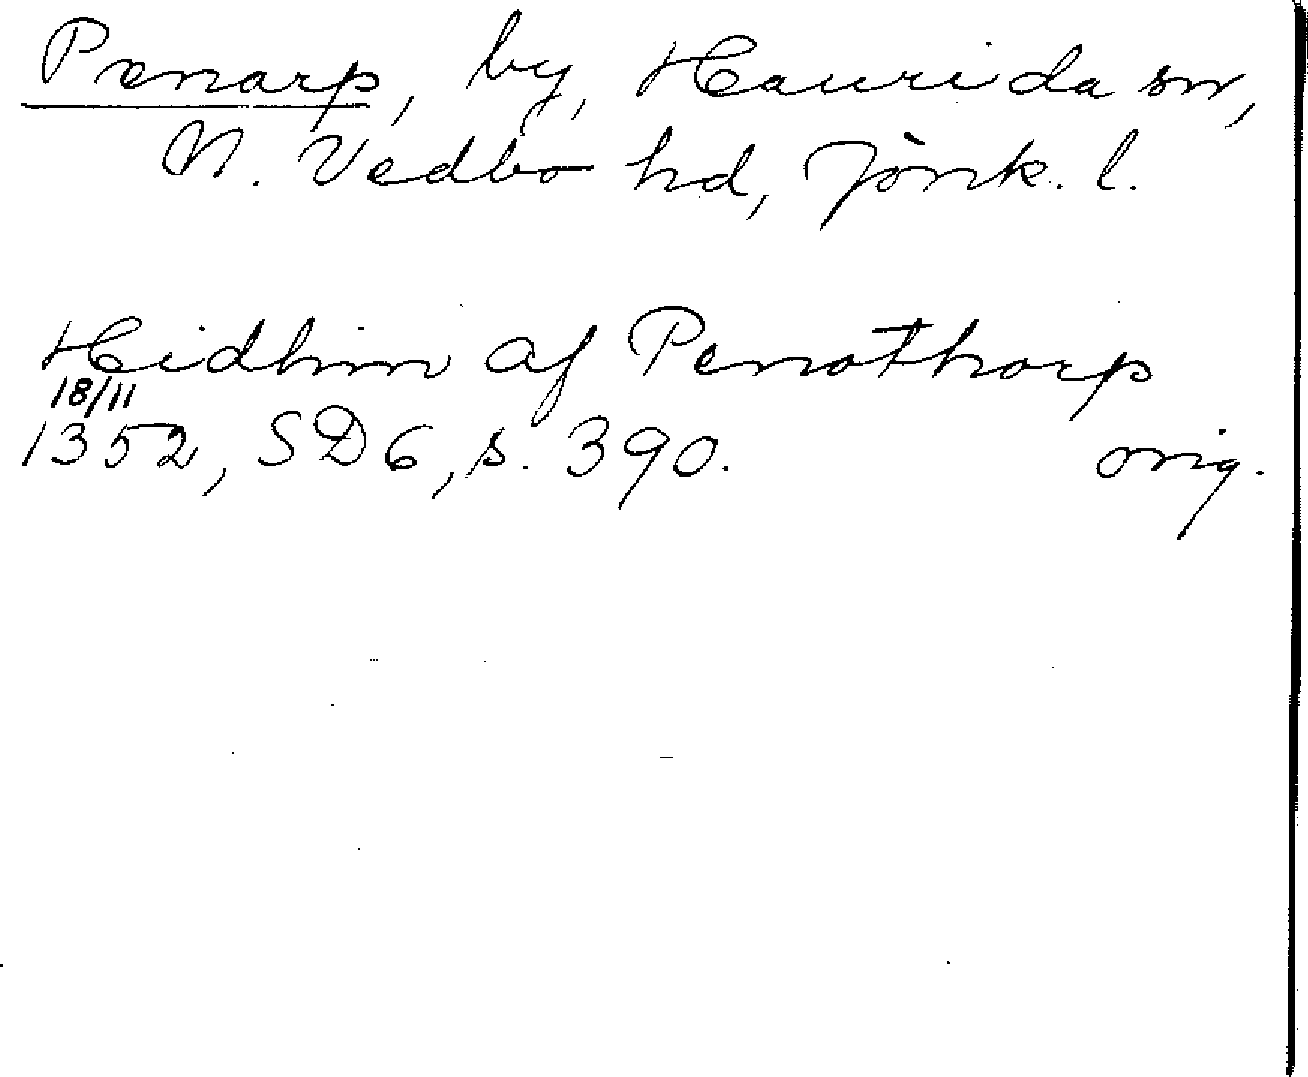 Penarp, by, Haurida sn,
N. Vedbo hd, Jönk. l.
Hidhin af Penathorp
18/11
1352, SD6, s. 390. orig.